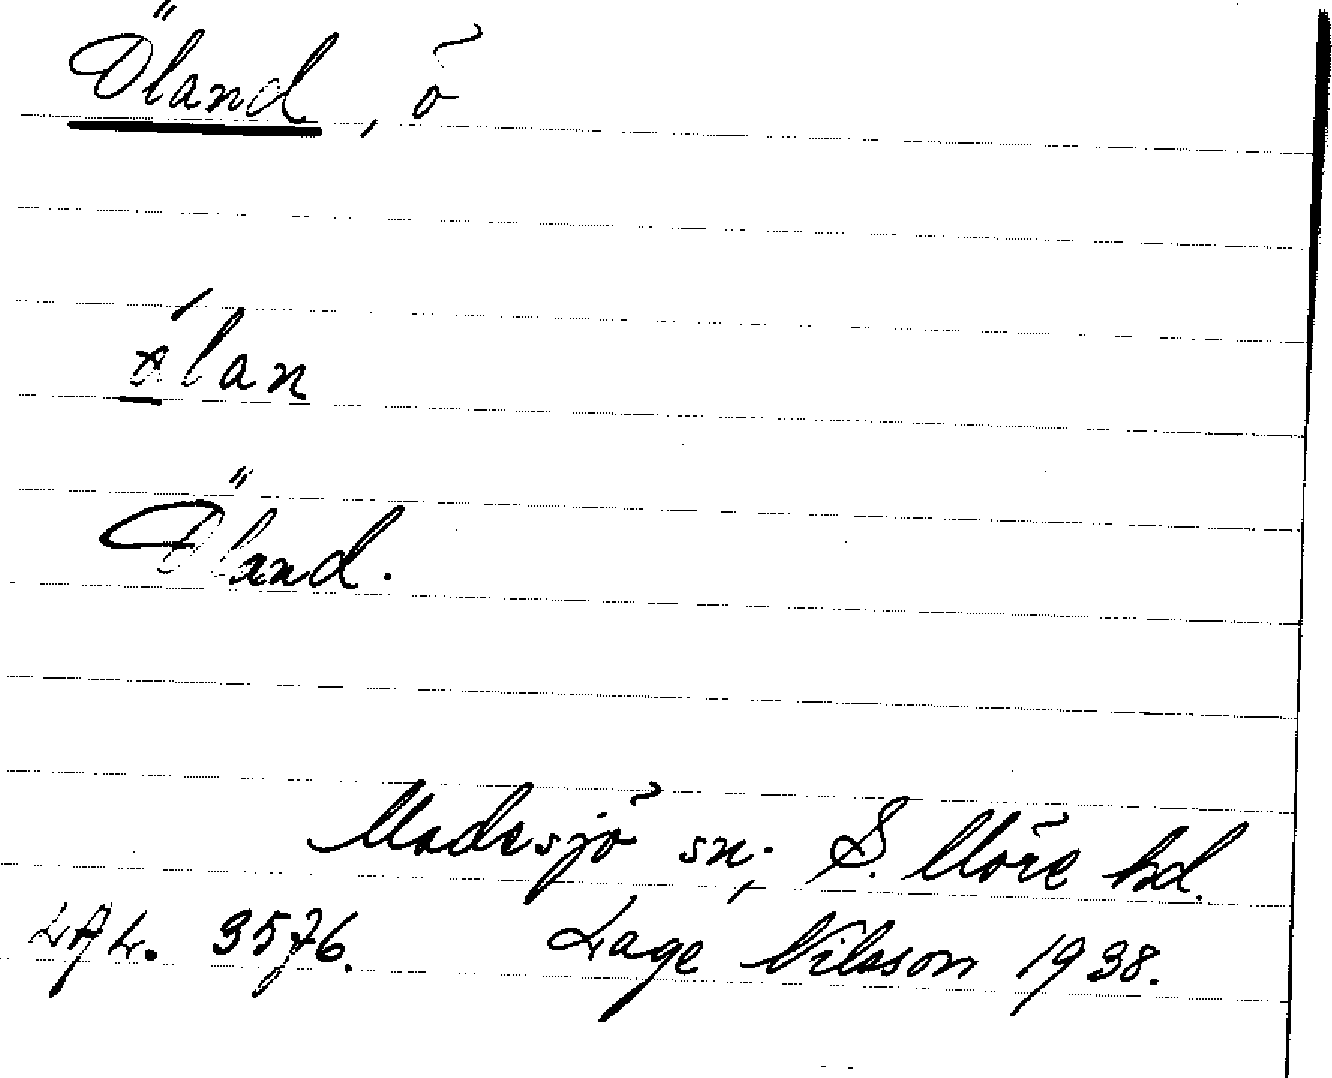 Öland, ö
ǿlan
Öland.
Madesjö sn; S. Möre hd.
LAL. 3576. Lage Nilsson 1938.